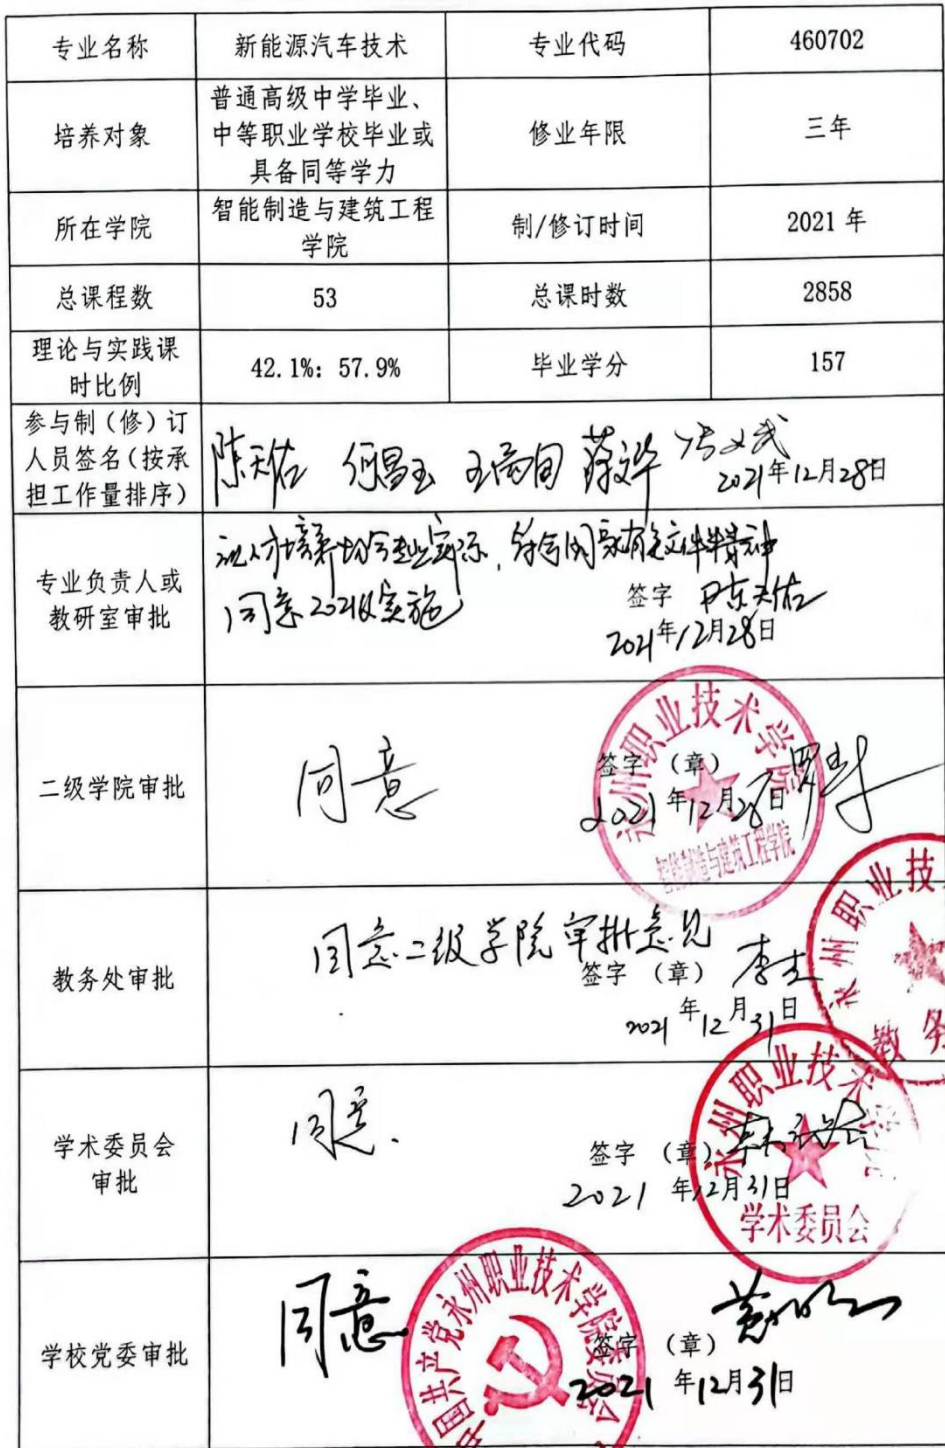 专业名称 新能源汽车技术 专业代码 460702
培养对象 普通高级中学毕业、
中等职业学校毕业或
具备同等学力 修业年限 三年
所在学院 智能制造与建筑工程
学院 制/修订时间 2021 年
总课程数 53 总课时数 2858
理论与实践课
时比例 42.1%: 57.9% 毕业学分 157
参与制（修）订
人员签名（按承
担工作量排序）
陈天佑 何昌玉
2021年12月28日
专业负责人或
教研室审批
符合国家有关文件精神
同意2021级实施
签字 陈天佑
2021年12月28日
二级学院审批
同意
签字 （章）
2021年12月28日
永州职业技术学院
智能制造与建筑工程学院
教务处审批
同意二级学院审批意见
签字 （章）
2021年12月31日
永州职业技
教务
学术委员会
审批
同意.
签字 （章）
2021 年12月31日
永州职业技术学院
学术委员会
学校党委审批
同意
签字 （章）
2021 年12月31日
中国共产党永州职业技术学院委员会